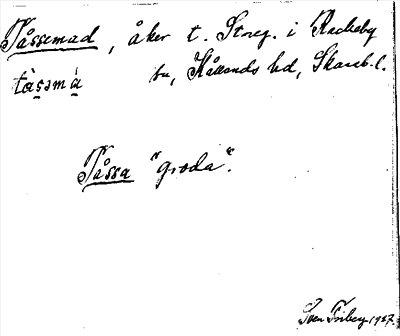 Tåssemad, åker t. Storeg. i Rackeby
tàsǝmà sn, Kållands hd, Skarab. l.
Tåssa "groda".
Sven Friberg 1927.